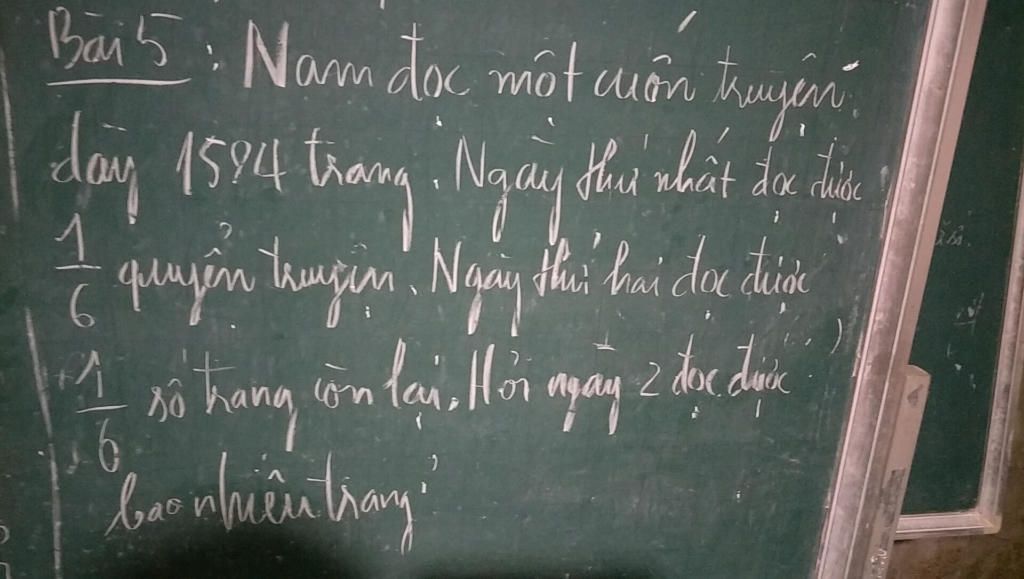 Bài 5 : Nam đọc một cuốn truyện
dày 1594 trang. Ngày thứ nhất đọc được
1/6 quyển truyện. Ngày thứ hai đọc được
1/6 số trang còn lại. Hỏi ngày 2 đọc được
bao nhiêu trang